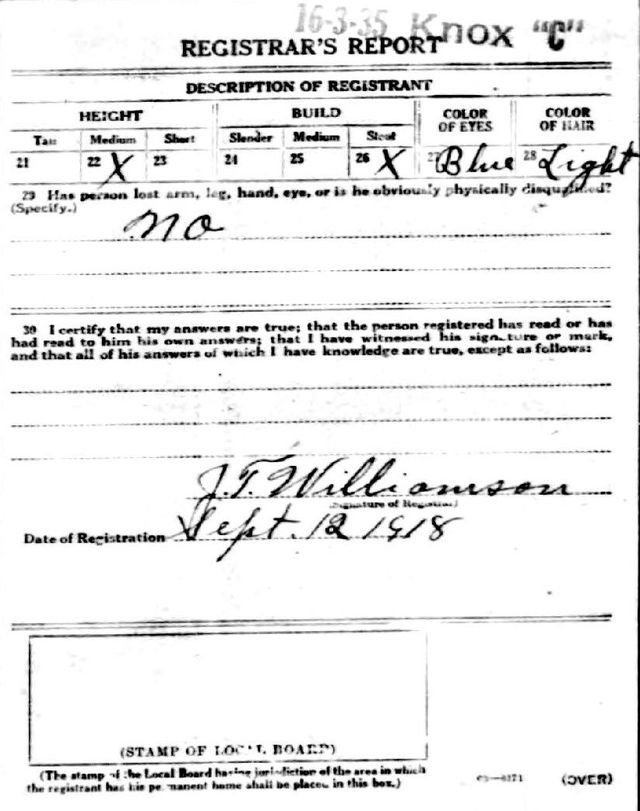 16-3-35 Knox "C"
REGISTRAR'S REPORT
DESCRIPTION OF REGISTRANT
HEIGHT BUILD COLOR OF EYES COLOR OF HAIR
Tall Medium Short Slender Medium Stout
21 22 X 23 24 25 26 X 27 Blue 28 Light
29 Has person lost arm, leg, hand, eye, or is he obviously physically disqualified?
(Specify.)
No
30 I certify that my answers are true; that the person registered has read or has
had read to him his own answers; that I have witnessed his signature or mark,
and that all of his answers of which I have knowledge are true, except as follows:
J. T. Williamson
(Signature of Registrar)
Date of Registration Sept. 12 1918
(STAMP OF LOCAL BOARD)
(The stamp of the Local Board having jurisdiction of the area in which
the registrant has his permanent home shall be placed in this box.)
(OVER)